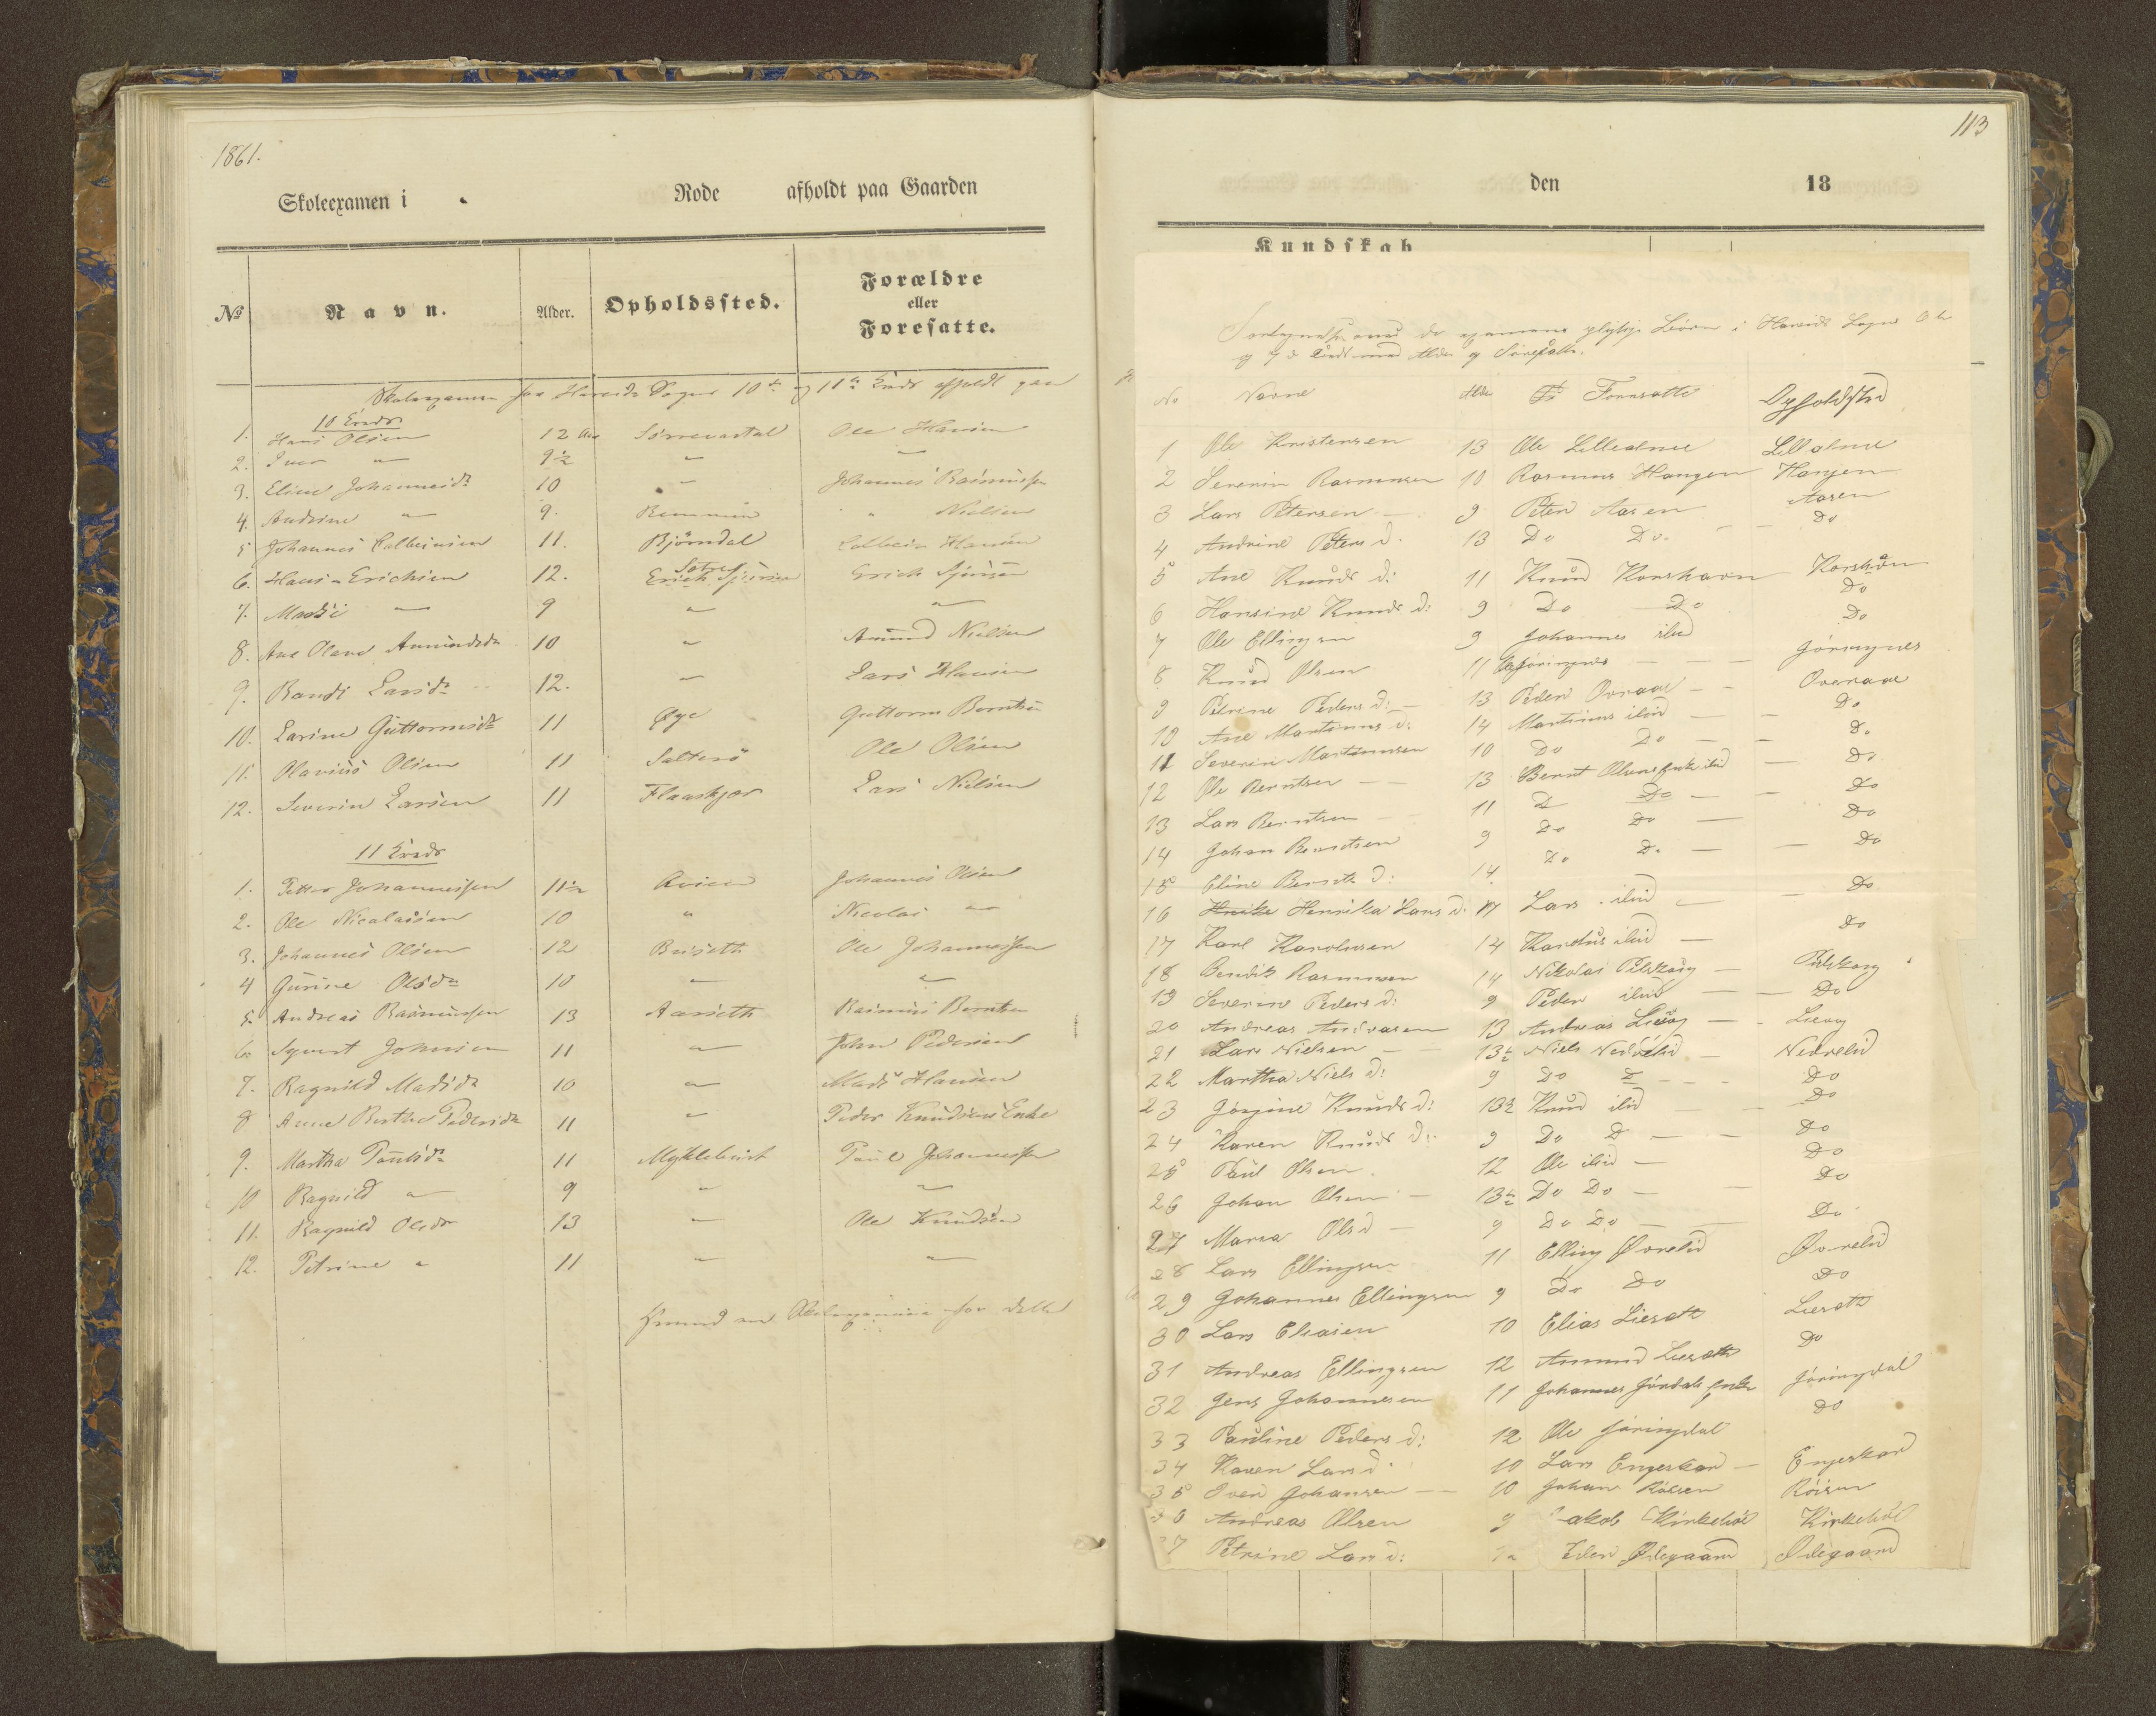 1861.
Skoleexamen i Rode afholdt paa Gaarden
No Navn. Alder. Opholdssted. Forældre eller Foresatte.
Skoleexamen for Hareids Sogns 10de og 11te
10 Krads
1. Hans Olsen 12 Aar Ole Hansen
2. Iver " 9½ " "
3. Eline Johannesdr 10 " Johannes Rasmussen
4. Andrine " 9. " Nielsen
5. Johannes Colbeinsen 11. Bjørndal Colbein Hansen
6. Hans Erichsen 12. Erich Sjursen Sætre Erich Sjursen
7. Mads " 9 " "
8. Ane Oland Amundsdr 10 " Amund Nielsen
9. Randi Larsdr 12. " Lars Hansen
10. Larine Guttormsdr 11 Øye Guttorm Berntsen
11. Olavius Olsen 11 Ole Olsen
12. Severin Larsen 11 Flaaskjær Lars Nielsen
11 Krads
1. Petter Johannessen 11½ Johannes Olsen
2. Ole Nicolaisen 10 " Nicolai "
3. Johannes Olsen 12 Briseth Ole Johannessen
4 Gurine Olsdr 10 " "
5. Andreas Rasmussen 13 Aarseth Rasmus Berntsen
6. Syvert Johnsen 11 " John Pedersen
7. Ragnild Madsdr 10 " Mads Hansen
8 Anne Berthe Pedersdr 11 " Peder Knudsens Enke
9. Martha Poulsdr 11 Myklebust Poul Johannessen
10 Ragnild " 9 " "
11. Ragnild Olsdr 13 " Ole Knudsen
12. Petrine " 11 " "
113
den 18
Kundskab
i Hareids Sogns 6te
og 7de med Alder og Foresatte.
No Navne Alder Foresatte Opholdsted
1 Ole Kristensen 13 Ole Lillealme Lillalme
2 Severin Rasmussen 10 Rasmus Haugen Haugen
3 Lars Petersen 9 Peter Aasen Aasen
4 Andrine Peters d. 13 Do Do. Do
5 Ane Knuds d: 11 Knud Korshavn Korshavn
6 Hansine Knuds d: 9 Do Do Do
7 Ole Ellingsen 9 Johannes ibid Do
8 Knud Olsen 11 Gjøringnes Gjøringnes
9 Petrine Peders d: 13 Peder Overaae Overaae
10 Ane Martinus d: 14 Martinus ibid Do
11 Severin Martinusen 10 Do Do Do
12 Ole Berntsen 13 Bernt Olsens Enke ibid Do
13 Lars Berntsen 11 Do Do Do
14 Johan Berntsen 9 Do Do Do
15 Eline Bernts d: 14 Do Do Do
16 Henrika Lars d. 11 Lars ibid Do
17 Karl Karolusen 14 Karolus ibid Do
18 Bendik Rasmussen 14 Nikolai Pilskog Pilskog
19 Severine Peders d: 9 Peder ibid Do
20 Andreas Andreasen 13 Andreas Liaøg Liaøg
21 Lars Nielsen 13½ Niels Nedrelid Nedrelid
22 Martha Niels d: 9 Do Do Do
23 Jørgine Knuds d: 13½ Knud ibid Do
24 Karen Knuds d: 9 Do Do Do
25 Paul Olsen 12 Ole ibid Do
26 Johan Olsen 13½ Do Do Do
27 Maria Ols d 9 Do Do Do
28 Lars Ellingsen 11 Elling Øvrelid Øvrelid
29 Johannes Ellingsen 9 Do Do Do
30 Lars Eliasen 10 Elias Lieseth Lieseth
31 Andreas Ellingsen 12 Amund Lieseth Do
32 Jens Johannesen 11 Johannes Gjørdals Enke Gjøringdal
33 Pauline Peders d: 12 Ole Gjøringdal Do
34 Karen Lars d 10 Lars Engeskar Engeskar
35 Sven Johansen 10 Johan Røisen Røisen
36 Andreas Olsen 9 Jakob Kirkebøl Kirkebøl
37 Petrine Lars d: Peder Ødegaard Ødegaard